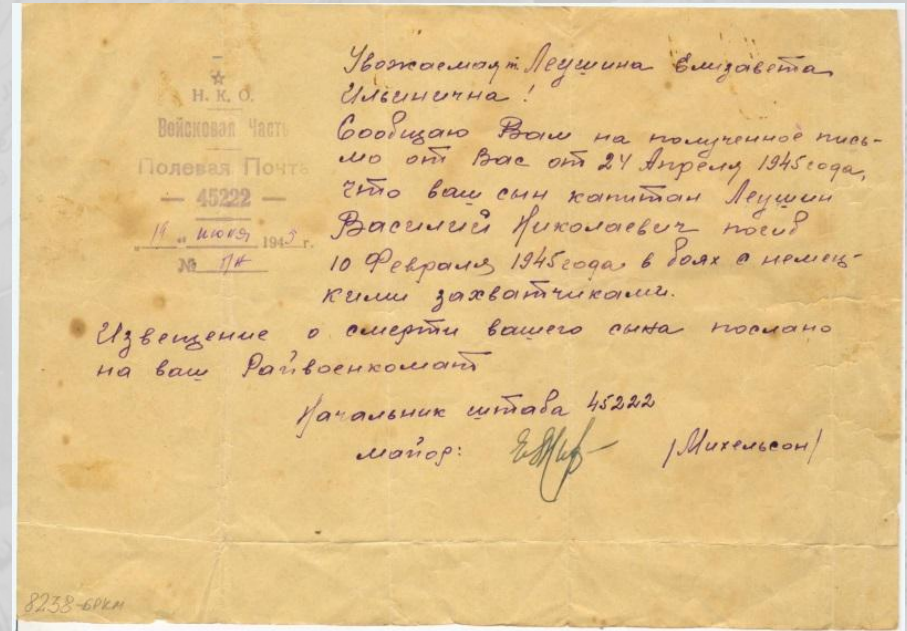 Н. К. О.
Войсковая Часть
Полевая Почта
— 45222 —
"19" июня 1945 г.
№ П/К
Уважаемая т. Леушина Елизавета
Ильинична!
Сообщаю Вам на полученное пись-
мо от Вас от 24 Апреля 1945 года,
что ваш сын капитан Леушин
Василий Николаевич погиб
10 Февраля 1945 года в боях с немец-
кими захватчиками.
Извещение о смерти вашего сына послано
на ваш Райвоенкомат
Начальник штаба 45222
майор: /Михельсон/
8238-БРКМ